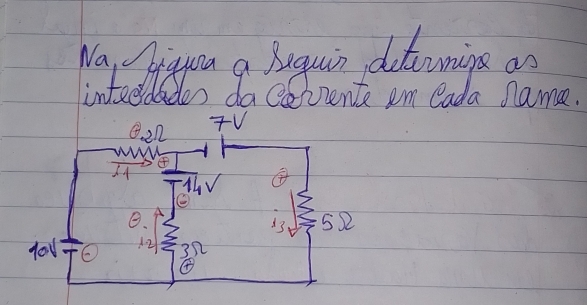 Na figura a seguir determine as
intesidades da corrente em Cada Ramo.
7V
⊖ 2Ω
i1 ⊕
14V
⊖
⊕
⊖
i2
3Ω
⊕
i3
5Ω
10V ⊖